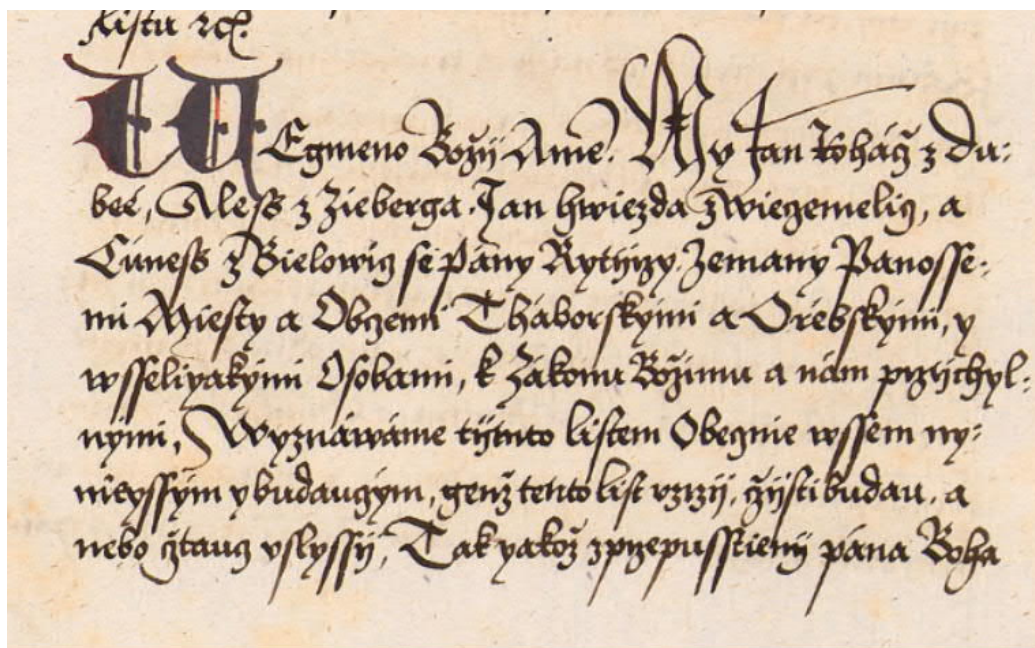 listu ꝛcͣ.
W Egmeno Božij Ame̅. My Jan Roháč z Du:
beé, Aless z Zieberga. Jan hwiezda z Wicgemelicz, a
Cúness z Bielowicz se pány Rytijrzy. Zemany Panosse:
mi Miesty a Obczemi Tháborskými a Orébskými, y
wsseliyakými Osobami, k Zákonu Božimu a nám przijchyl:
nými, Wyznáwáme tijmto listem Obecznie wssem ny:
nieyssým y budaucým, genž tento list vzrzij, čijsti budau, a
nebo čtaucz vslyssij, Tak yakož z przepusstienij pána Boha